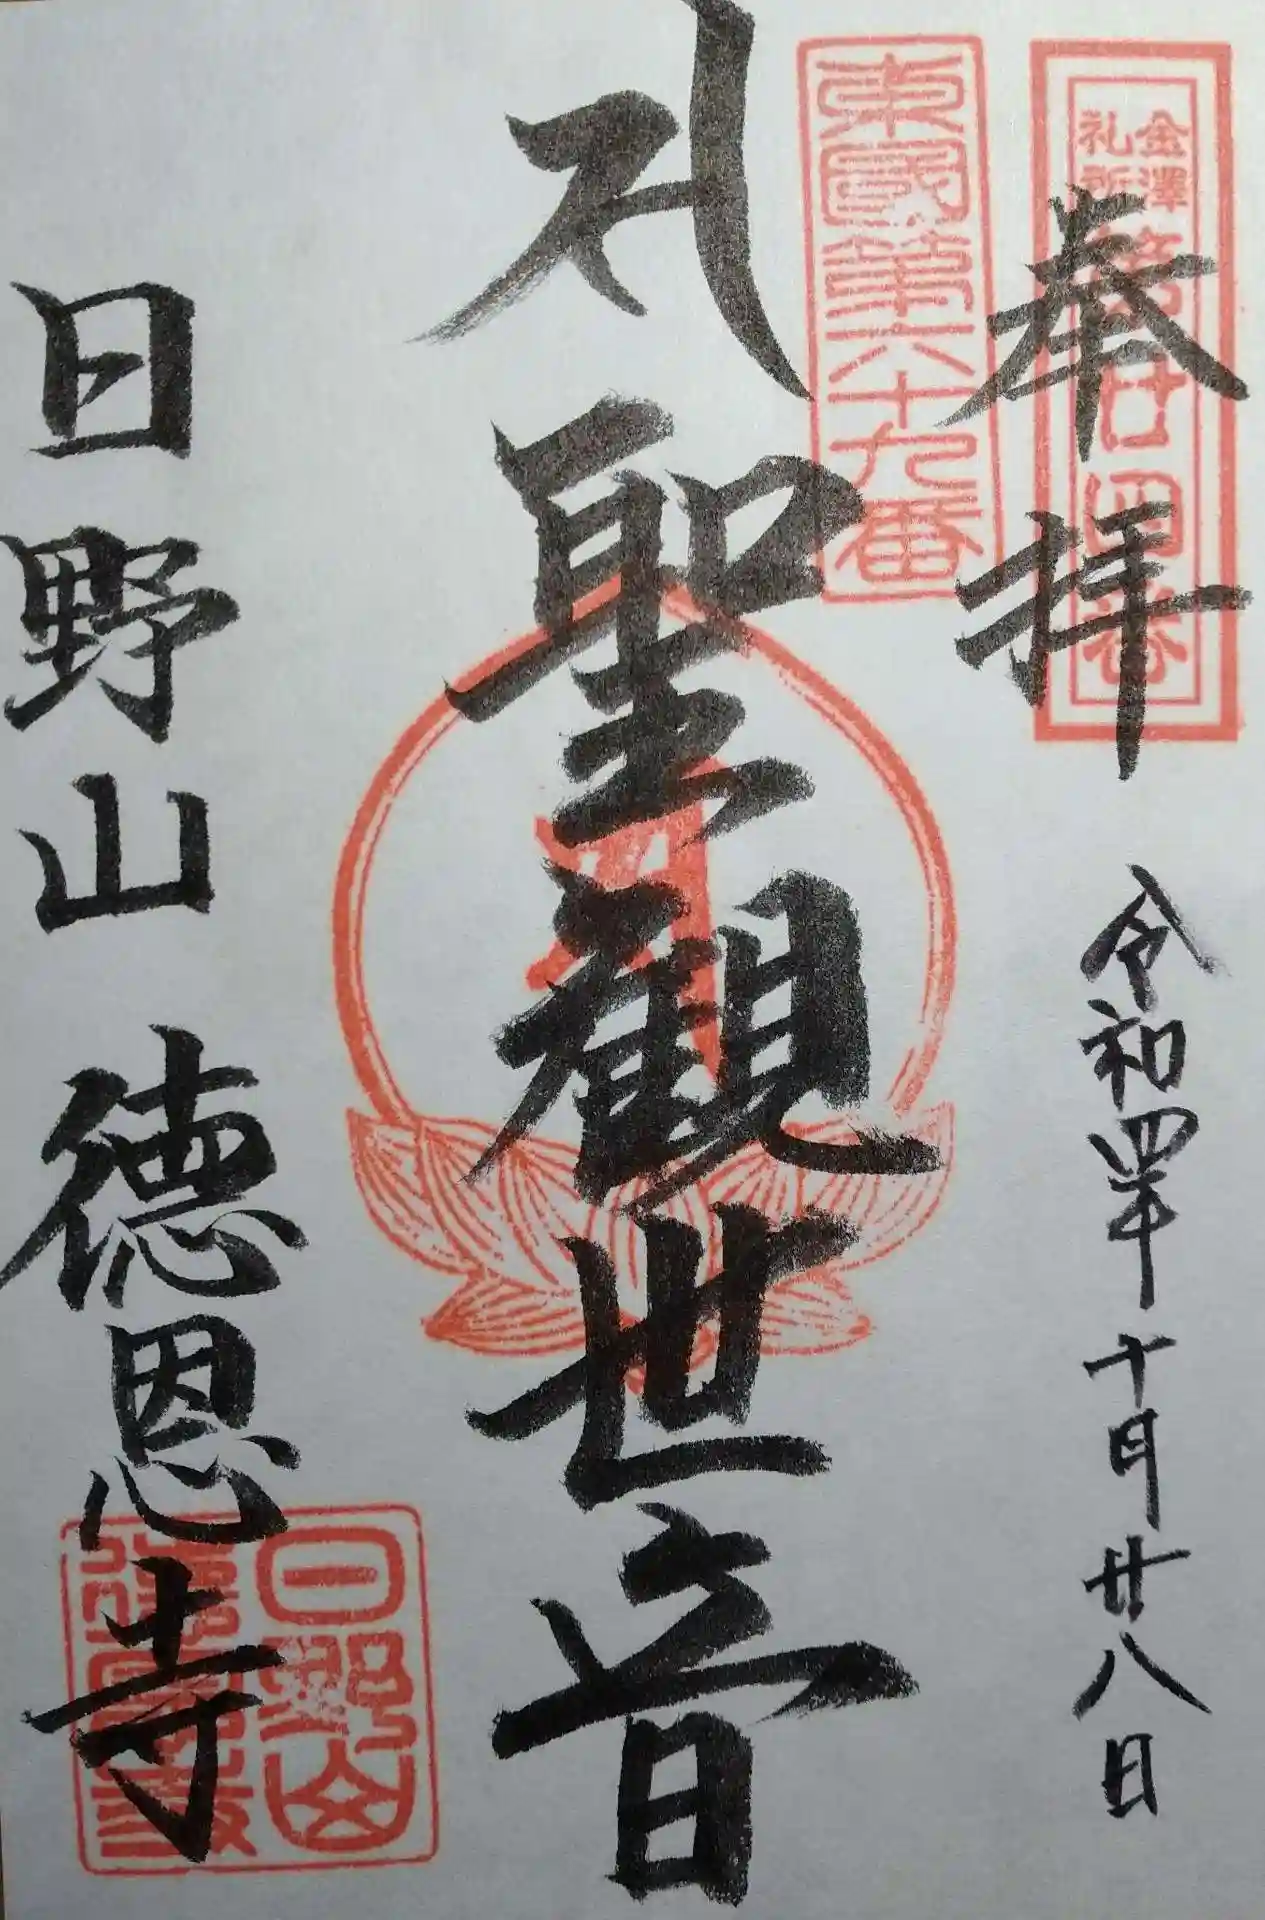 奉拝
令和四年十月廿八日
金澤
礼所
第廿四番
東國第六十九番
聖觀世音
日野山 德恩寺
日野山